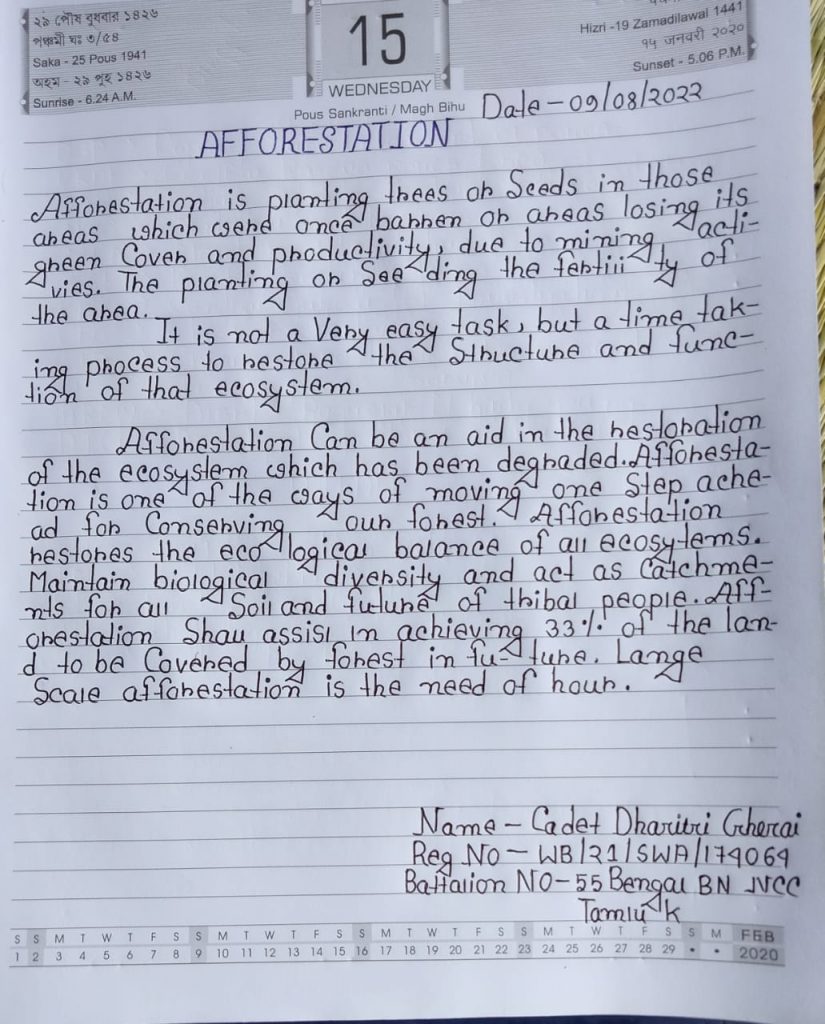 ২৯ পৌষ বুধবার ১৪২৬
পঞ্চমী ঘঃ ৩/৫৪
Saka - 25 Pous 1941
অহম - ২৯ পুহ ১৪২৬
Sunrise - 6.24 A.M.
15
WEDNESDAY
Pous Sankranti / Magh Bihu
Hizri -19 Zamadilawal 1441
१५ जनवरी २०२०
Sunset - 5.06 P.M.
Date - 09/08/2022
AFFORESTATION
Afforestation is planting trees or Seeds in those
areas which were once barren or areas losing its
green Cover and productivity, due to mining acti-
vies. The planting or See ding the fertili ty of
the area.
It is not a Very easy task, but a time tak-
ing process to restore the Structure and func-
tion of that ecosystem.
Afforestation Can be an aid in the restoration
of the ecosystem which has been degraded. Afforesta-
tion is one of the ways of moving one Step ache-
ad for Conserving our forest. Afforestation
restores the eco logical balance of all ecosytems.
Maintain biological diversity and act as Catchme-
nts for all Soil and future of tribal people. Aff-
orestation Shall assist in achieving 33% of the lan-
d to be Covered by forest in fu- ture. Large
Scale afforestation is the need of hour.
Name - Cadet Dharitri Gherai
Reg No - WB/21/SWA/174064
Battalion NO - 55 Bengal BN NCC
Tamluk
S S M T W T F S S M T W T F S S M T W T F S S M T W T F S S M FEB
1 2 3 4 5 6 7 8 9 10 11 12 13 14 15 16 17 18 19 20 21 22 23 24 25 26 27 28 29 • • 2020